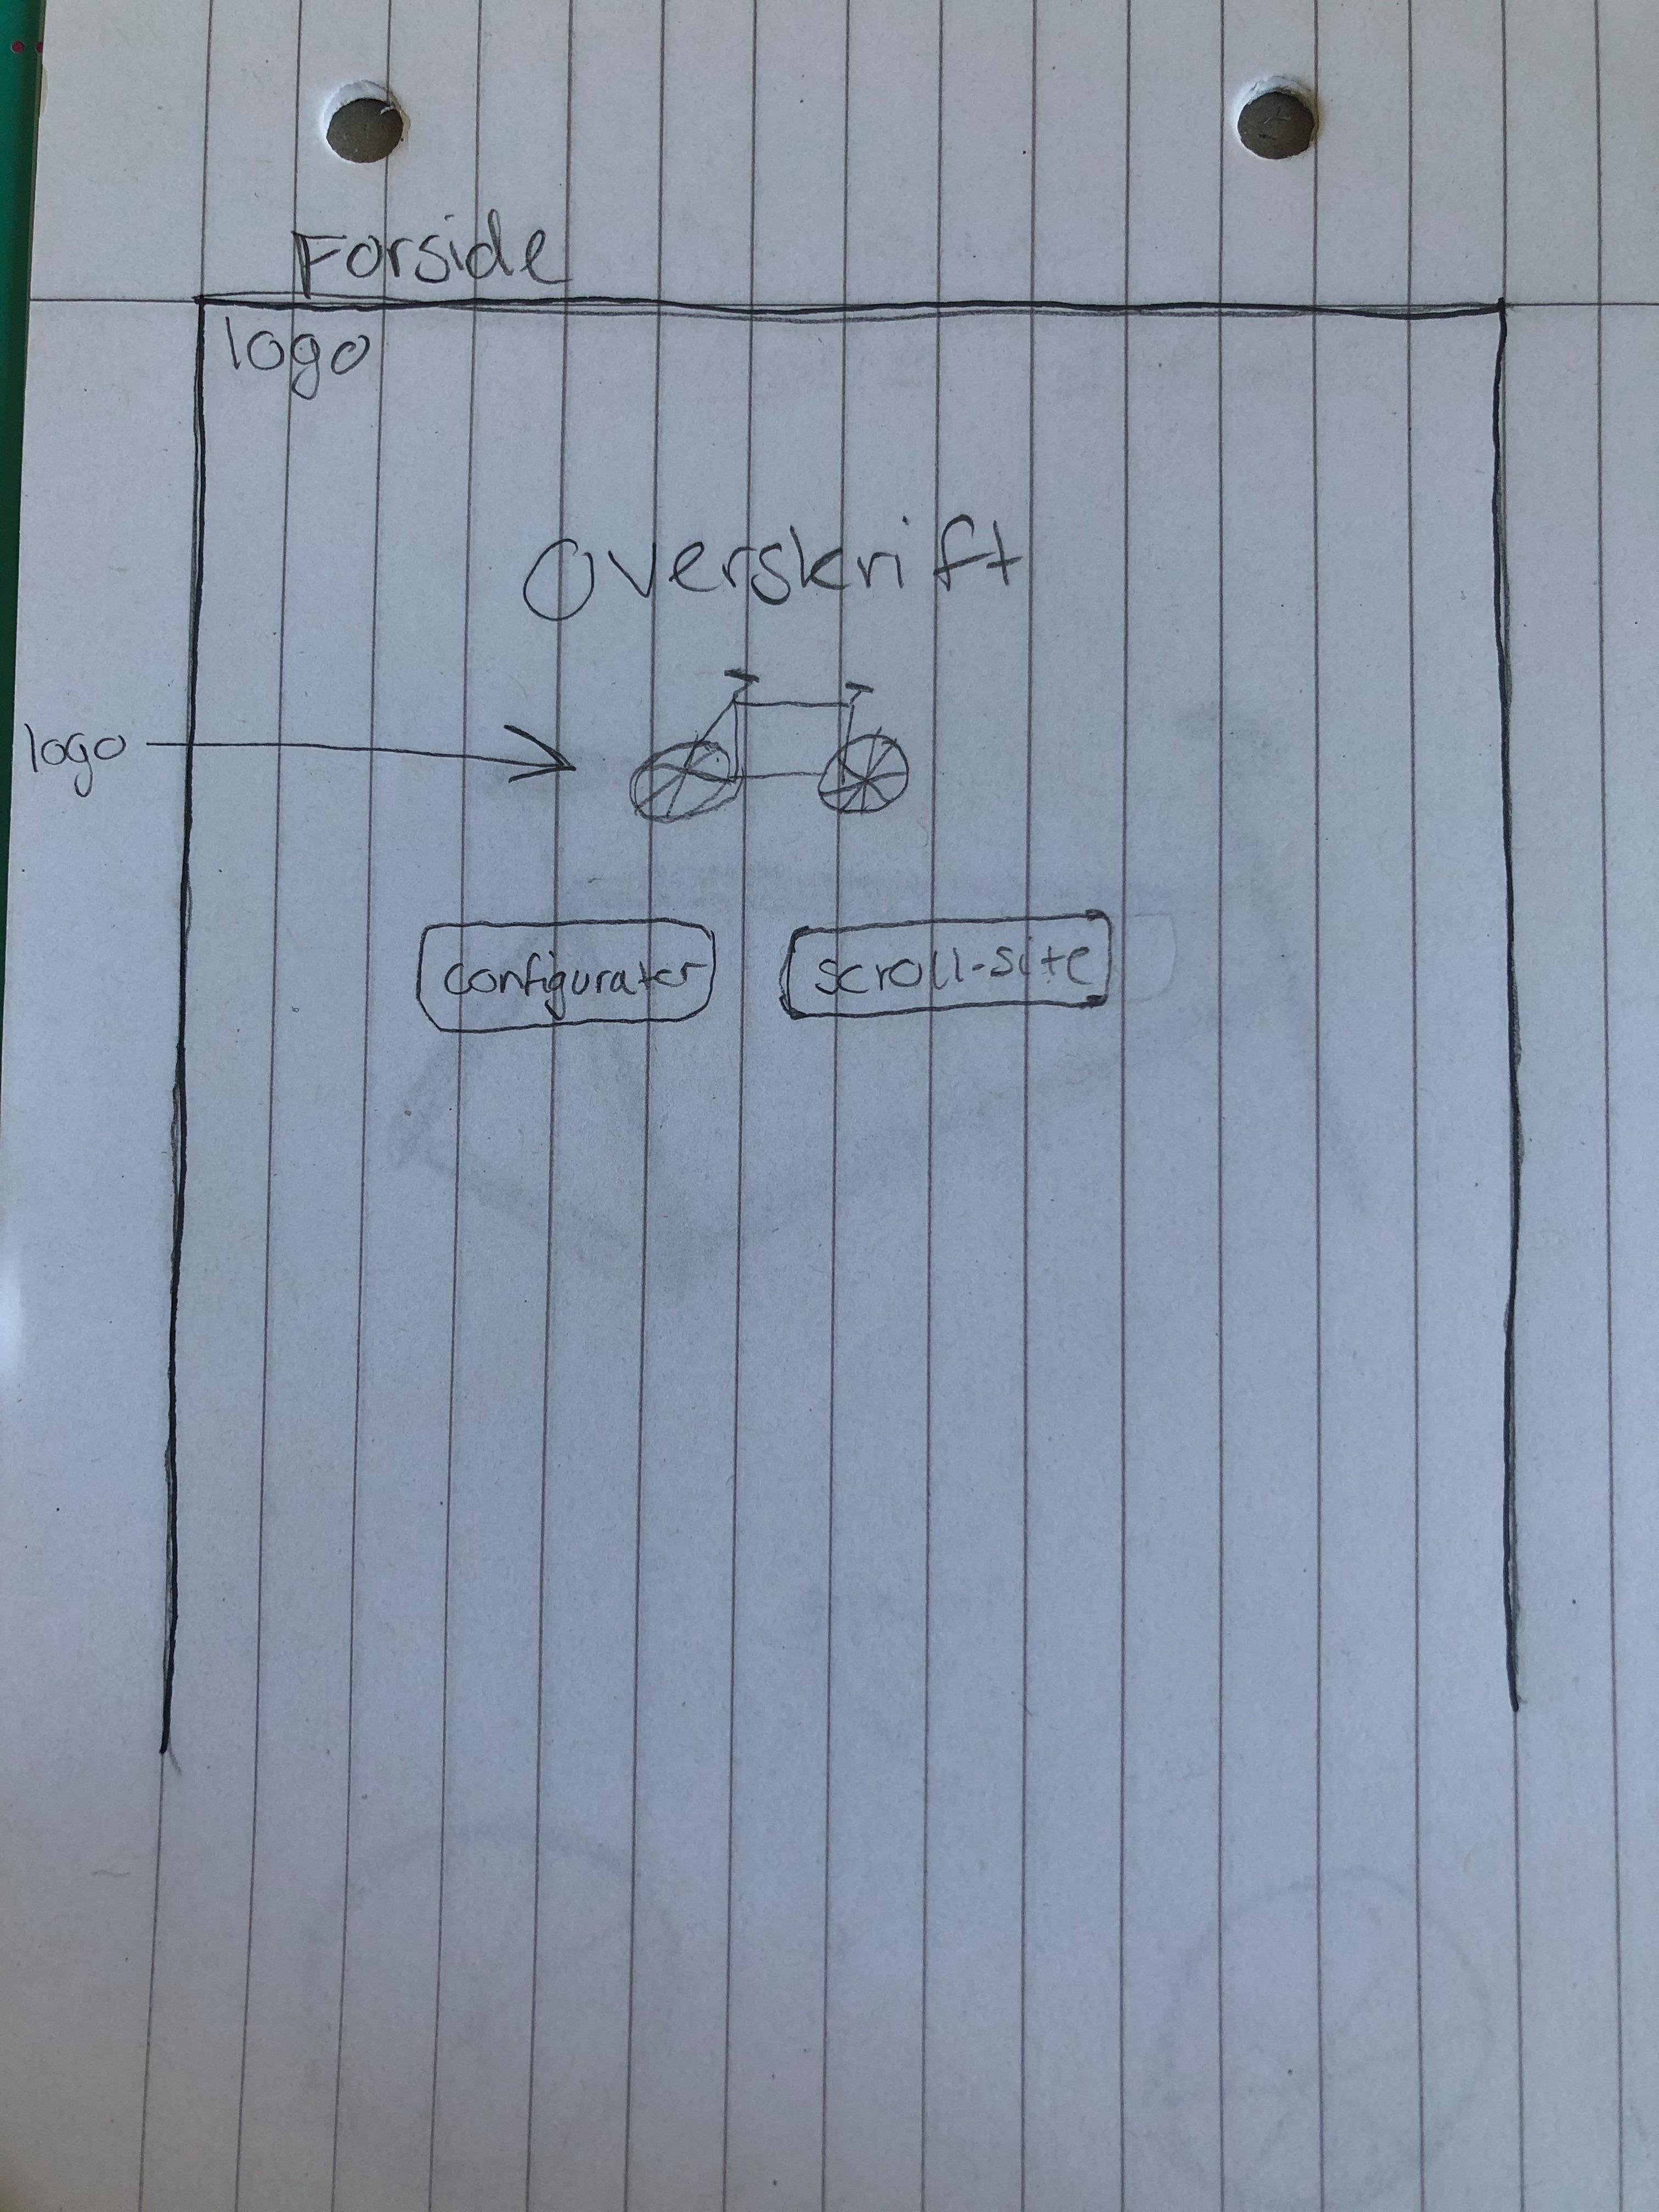 Forside
logo
Overskrift
logo
configurater
scroll-site